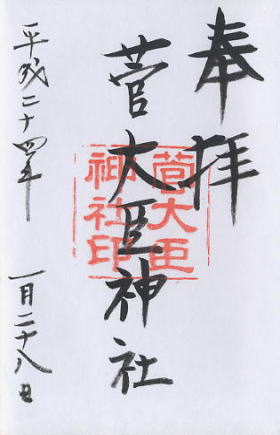 奉拝
菅大臣神社
菅大臣
神社印
平成二十四年
一月二十八日